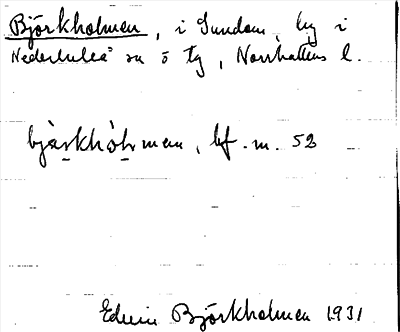 Björkholmen, i Sundom, by i
Nederluleå sn ö tg, Norrbottens l.
bf. m. 52
Edvin Björkholmen 1931